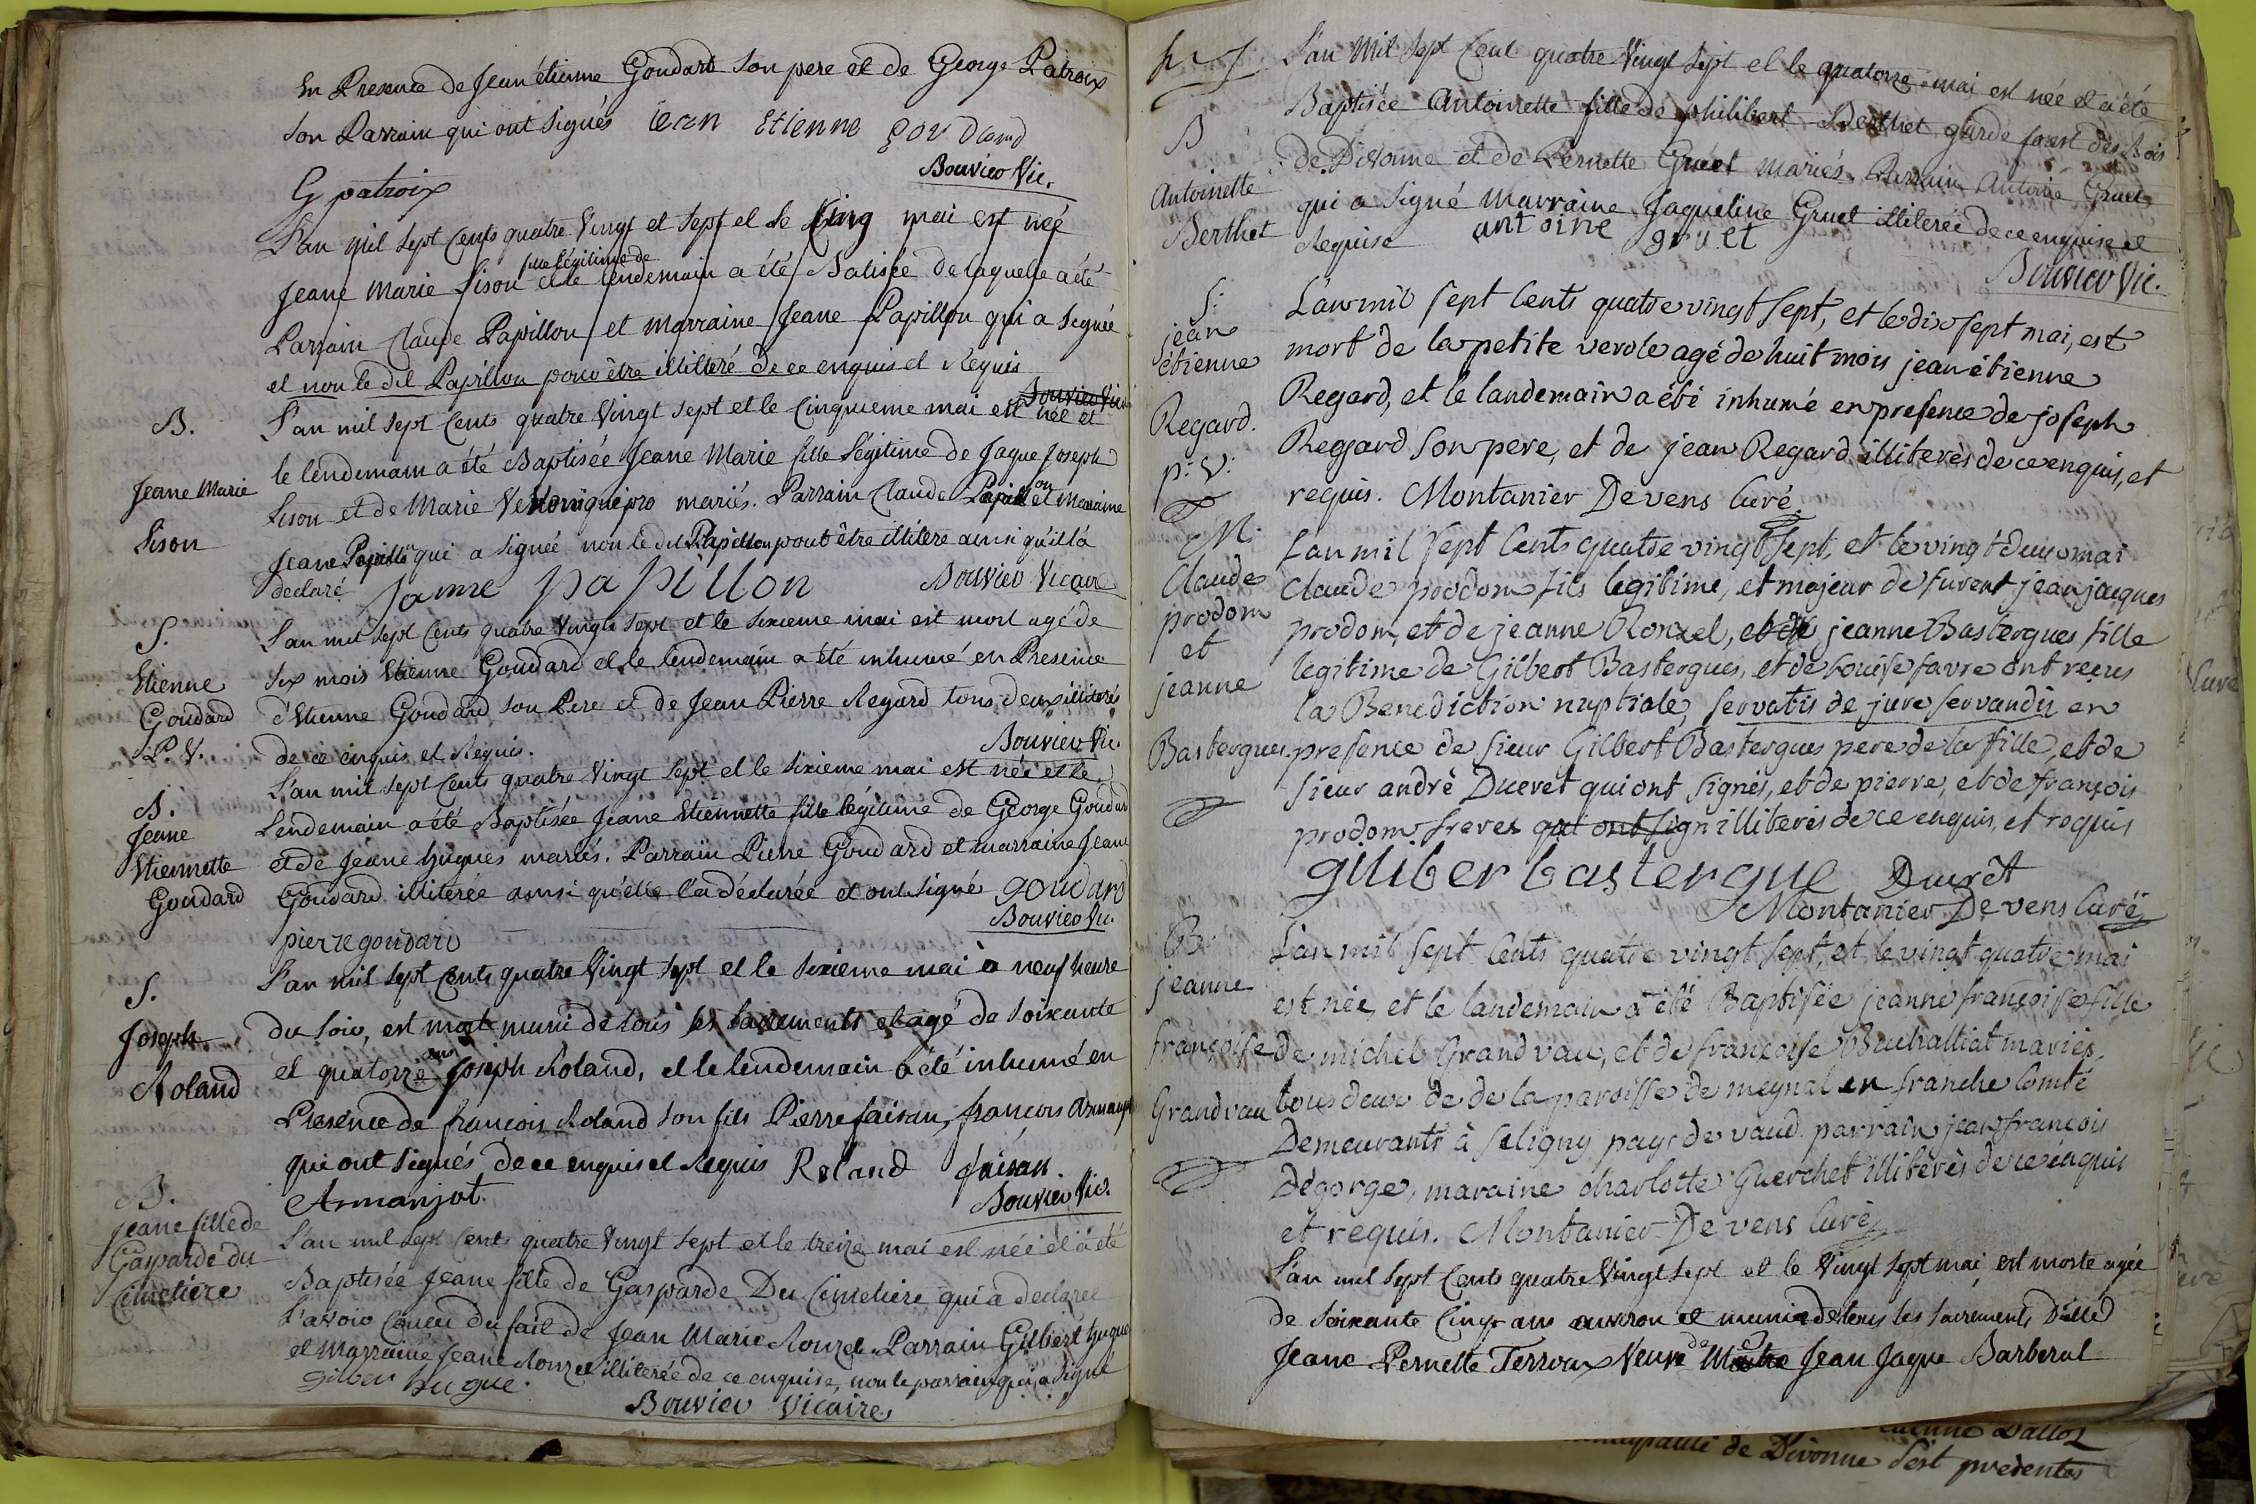 En Presence de Jean étienne Goudard son pere et de George Patroix
son Parrain qui ont signés iean Etienne goudard
G patroix Bouvier Vic.
L'an mil sept Cents quatre Vingt et sept et le Cinq mai est née
fille légitime de
Jeane Marie Sison et le lendemain a été Batisée de laquelle a été
Parrain Claude Papillon et Marraine Jeane Papillon qui a signée
et non le dit Papillon pour être illitéré de ce enquis et Requis
Bouvier Vic
B.
Jeane Marie
Sison
L'an mil sept Cents quatre Vingt sept et le Cinquieme mai est née et
le lendemain a été Baptisée Jeane Marie fille légitime de Jaque Joseph
Sison et de Marie mariés. Parrain Claude Papillon et Maraine
Jeane Papillon qui a signée non le dit Papillon pour être illitere ainsi qu'il l'a
declaré Janne papillon Bouvier Vicaire
S.
Etienne
Goudard
P. V.
L'an mil sept Cents quatre Vingts sept et le sixieme mai est mort agé de
six mois Etienne Goudard et le lendemain a été inhumé en Presence
d'Etienne Goudard son Pere et de Jean Pierre Regard tous deux illiterés
de ce enquis et Requis. Bouvier Vic.
B.
Jeane
Etiennette
Goudard
L'an mil sept Cents quatre Vingt sept et le sixieme mai est née et le
lendemain a été Baptisée Jeane Etiennette fille légitime de George Goudard
et de Jeane hugues mariés. Parrain Pierre Goudard et marraine Jeane
Goudard illiterée ainsi qu'elle l'a déclarée et ont signé goudard
Bouvier Vic.
pierre goudard
S.
Joseph
Roland
L'an mil sept Cents quatre Vingt sept et le sixieme mai à neuf heure
du soir, est mort muni de tous les sacrements et agé de soixante
et quatorze ans Joseph Roland, et le lendemain a été inhumé en
Presence de françois Roland son fils Pierre faisan, françois Armanjot
qui ont signés de ce enquis et Requis Roland faisan.
Armanjot. Bouvier Vic.
B.
jeane fille de
Gasparde du
Cimetiere
L'an mil sept Cents quatre Vingt sept et le treize mai est née et a été
Baptisée Jeane fille de Gasparde Du Cimetiere qui a declarée
l'avoir Conçu du fait de Jean Marie Rouzet Parrain Gilbert hugue
et Marraine Jeane Rouzet illiterée de ce enquise, non le parrain qui a signé
Gilber hugue.
Bouvier Vicaire
B
Antoinette
Berthet
L'an Mil sept Cent quatre Vingt sept et le quatorze mai est née et a été
Baptisée Antoinette fille de philibert Berthet garde foret des Bois
de Divonne et de Pernette Gruet mariés Parrain Antoine Gruet
qui a signé marraine Jaqueline Gruet illiterée de ce enquise et
Requise antoine gruet
Bouvier Vic.
S:
jean
étienne
Regard.
p: V:
L'an mil sept Cents quatre vingt sept, et le dix sept mai, est
mort de la petite verole agé de huit mois jean étienne
Regard, et le landemain a été inhumé en presence de joseph
Regard son pere, et de jean Regard illiterés de ce enquis, et
requis. Montanier Devens Curé.
M.
Claude
prodom
et
jeanne
Bastergues
L'an mil sept Cents quatre vingt sept, et le vingt deux mai
Claude prodom fils legitime, et majeur de furent jean jacques
prodom, et de jeanne Ronzel, et de jeanne Bastergues fille
legitime de Gilbert Bastergues, et de Louise favre ont reçus
la Benediction nuptiale, servatis de jure servandis en
presence de sieur Gilbert Bastergues pere de la fille, et de
sieur andré Ducret qui ont signés, et de pierre, et de françois
prodom freres qui ont sign illiterés de ce enquis, et requis
giliber bastergue Ducrêt
Montanier Devens Curé
B.
jeanne
françoise
Grandvau
L'an mil sept Cents quatre vingt sept, et le vingt quatre mai
est née, et le landemain a été Baptisée jeanne françoise fille
de michel Grandvau, et de françoise Buchalliat mariés,
tous deux de de la paroisse de meynal en franche Comté
Demeurants à Seligny pays de vaud. parrain jean françois
Dégorge, maraine charlotte Guerchet illiterés de ce enquis
et requis. Montanier Devens Curé
L'an mil sept Cents quatre Vingt sept et le Vingt sept mai est morte agée
de soixante Cinq ans environ et munie de tous les sacrements Dlle
Jeane Pernette Terroux Veuve de Me Jean Jaque Barberat
de Divonne s'est presentés